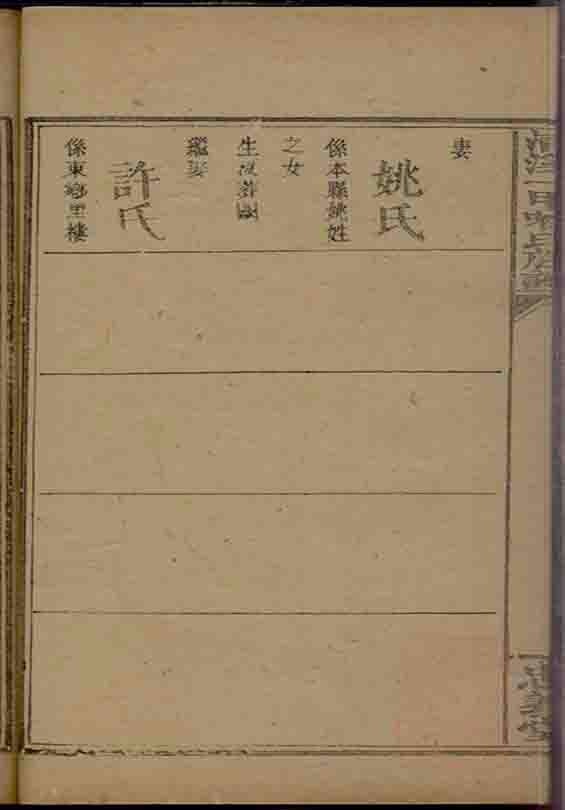 妻
姚氏
係本縣姚姓
之女
生沒葬闕
繼娶
許氏
係東鄉里樓